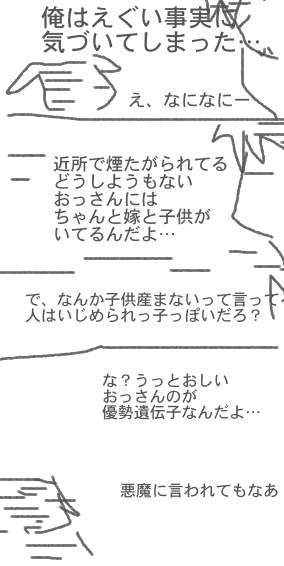 俺はえぐい事実に
気づいてしまった…
え、なになにー
近所で煙たがられてる
どうしようもない
おっさんには
ちゃんと嫁と子供が
いてるんだよ…
で、なんか子供産まないって言って
人はいじめられっ子っぽいだろ？
な？うっとおしい
おっさんのが
優勢遺伝子なんだよ…
悪魔に言われてもなあ